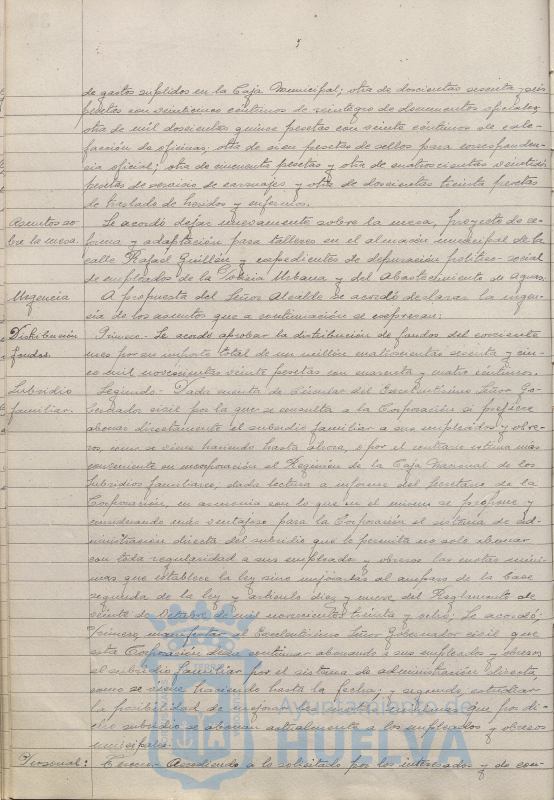 de gastos suplidos en la Caja Municipal; otra de doscientas sesenta y seis
pesetas con veinticinco céntimos de reintegro de documentos oficiales;
otra de mil doscientas quince pesetas con veinte céntimos de cale-
facción de oficinas; otra de cien pesetas de sellos para corresponden-
cia oficial; otra de cincuenta pesetas y otra de cuatrocientas veintiseis
pesetas de servicio de carruajes y otra de doscientas treinta pesetas
de traslado de heridos y enfermos.
Asuntos so-
bre la mesa.
Se acordó dejar nuevamente sobre la mesa, proyecto de re-
forma y adaptación para talleres en el almacén municipal de la
calle Rafael Guillén y expedientes de depuración político-social
de empleados de la Policía Urbana y del Abastecimiento de Aguas.
Urgencia
A propuesta del Señor Alcalde se acordó declarar la urgen-
cia de los asuntos que a continuación se expresan:
Distribución
fondos.
Primero.- Se acordó aprobar la distribución de fondos del corriente
mes por un importe total de un millón cuatrocientas sesenta y cin-
co mil novecientas veinte pesetas con cuarenta y cuatro céntimos.
Subsidio
familiar.
Segundo.- Dada cuenta de Circular del Excelentísimo Señor Go-
bernador civil por la que se consulta a la Corporación si prefiere
abonar directamente el subsidio familiar a sus empleados y obre-
ros, como se viene haciendo hasta ahora, o por el contrario estima más
conveniente su incorporación al Régimen de la Caja Nacional de los
Subsidios familiares; dada lectura a informe del Secretario de la
Corporación, en armonía con lo que en el mismo se propone y
considerando más ventajoso para la Corporación el sistema de ad-
ministración directa del subsidio que le permita no solo abonar
con toda regularidad a sus empleados y obreros las cuotas míni-
mas que establece la ley sino mejorarlas al amparo de la Base
segunda de la ley y artículo diez y nueve del Reglamento de
veinte de Octubre de mil novecientos treinta y ocho; Se acordó:
Primero, manifestar al Excelentísimo Señor Gobernador civil que
esta Corporación desea continuar abonando a sus empleados y obreros
el subsidio familiar por el sistema de administración directa,
como se viene haciendo hasta la fecha; y segundo, estudiar
la posibilidad de mejorar las que por di-
cho subsidio se abonan actualmente a los empleados y obreros
municipales.
Personal:
Tercero.- Accediendo a lo solicitado por los interesados y de con-
Ayuntamiento de
HUELVA